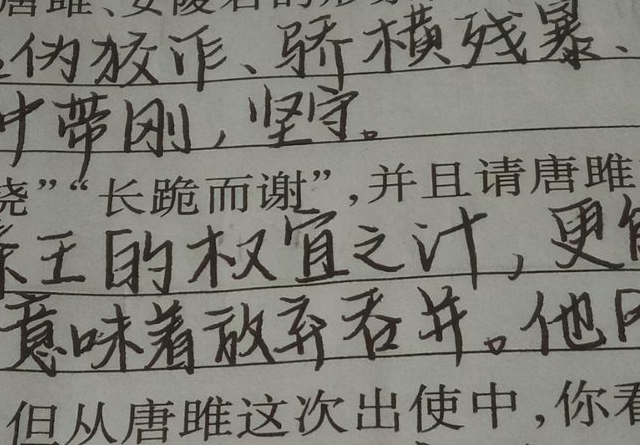 唐雎、安陵君的形象
伪狡诈、骄横残暴、
中带刚,坚守。
挠”“长跪而谢”,并且请唐雎
秦王的权宜之计,更能
意味着放弃吞并。他
但从唐雎这次出使中,你看